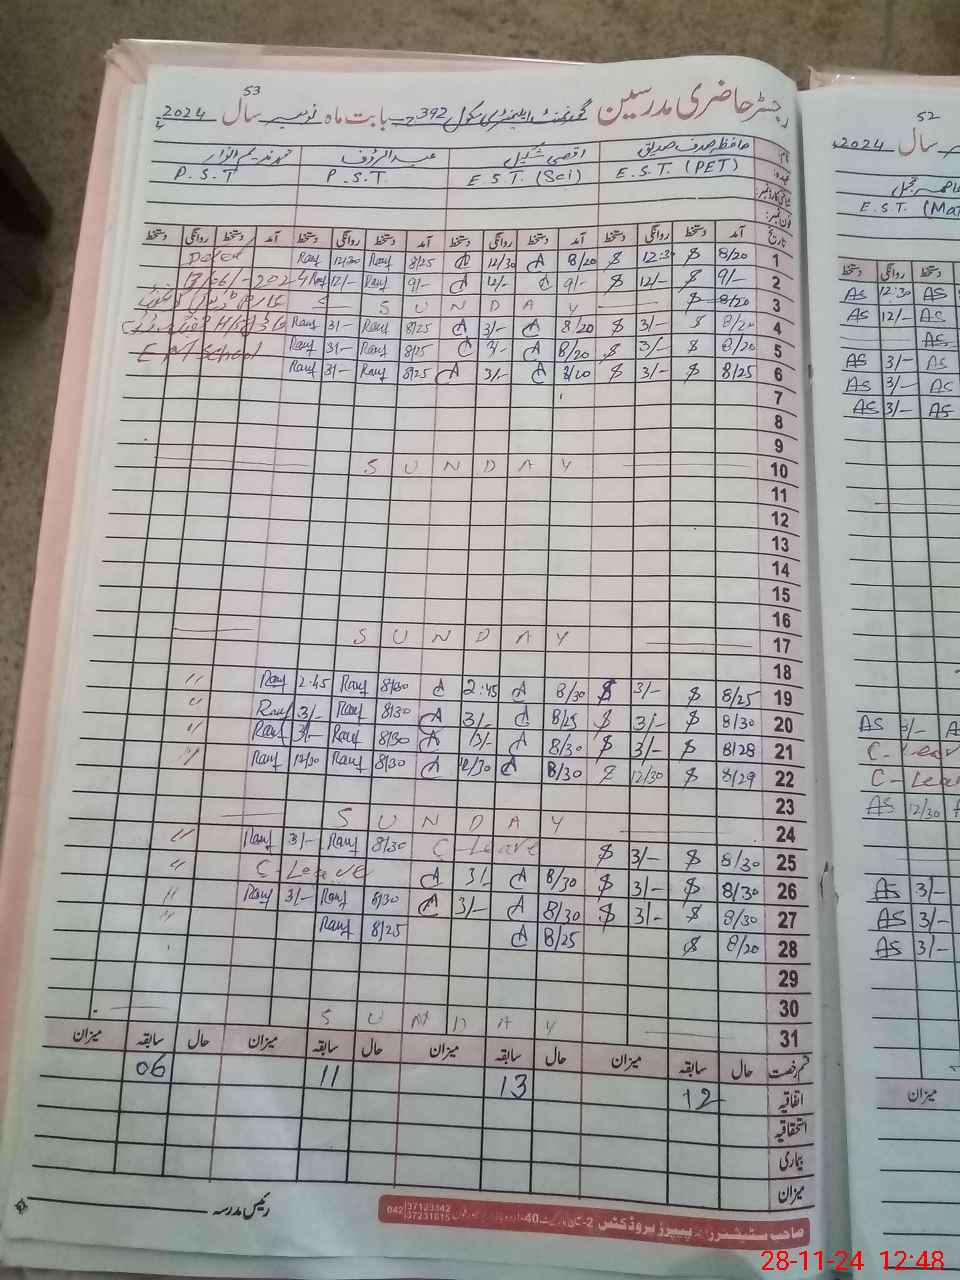 53
رجسٹر حاضری مدرسین گورنمنٹ ایلیمنٹری سکول 392 بابت ماہ نومبر سال 2024
نام حافظ صدف صدیق اقصیٰ شکیل عبدالرؤف محمد ندیم انوار
عہدہ E.S.T. (PET) E.S.T. (Sci) P.S.T. P.S.T
تاریخ آمد دستخط روانگی دستخط آمد دستخط روانگی دستخط آمد دستخط روانگی دستخط آمد دستخط روانگی دستخط
1 8/20 $ 12:30 $ 8/20 A 12/30 A 8/25 Rauf 12/30 Rauf
2 9/- $ 12/- $ 9/- A 12/- A 9/- Rauf 12/- Rauf 17/06/-2024
3 8/20 $ S U N D A Y
4 8/20 $ 3/- $ 8/20 A 3/- A 8/25 Rauf 3/- Rauf
5 8/20 $ 3/- $ 8/20 A 3/- A 8/25 Rauf 3/- Rauf School
6 8/25 $ 3/- $ 8/20 A 3/- A 8/25 Rauf 3/- Rauf
7
8
9
10 S U N D A Y
11
12
13
14
15
16
17 S U N D A Y
18
19 8/25 $ 3/- $ 8/30 A 2:45 A 8/30 Rauf 2:45 Rauf "
20 8/30 $ 3/- $ 8/25 A 3/- A 8/30 Rauf 3/- Rauf "
21 8/28 $ 3/- $ 8/30 A 3/- A 8/30 Rauf 3/- Rauf "
22 8/29 $ 12/30 $ 8/30 A 12/30 A 8/30 Rauf 12/30 Rauf "
23
24 S U N D A Y
25 8/30 $ 3/- $ C-Leave 8/30 Rauf 3/- Rauf "
26 8/30 $ 3/- $ 8/30 A 3/- A C-Leave "
27 8/30 $ 3/- $ 8/30 A 3/- A 8/30 Rauf 3/- Rauf "
28 8/20 $ 8/25 A 8/25 Rauf "
29
30
31 S U N D A Y
قسم رخصت حال سابقہ میزان حال سابقہ میزان حال سابقہ میزان حال سابقہ میزان
اتفاقیہ 12 13 11 06
استحقاقیہ
بیماری
میزان
رئیس مدرسہ
صاحب سٹیشنرز اینڈ پیپرز پروڈکٹس 2- 40- 042 37123342 37231615
52
سال 2024
E.S.T. (Mat
دستخط روانگی دستخط
AS 12:30 AS
AS 12/- AS
AS
AS 3/- AS
AS 3/- AS
AS 3/- AS
AS 3/- A
C-Leav
C-Leav
AS 12/30
AS 3/-
AS 3/-
AS 3/-
میزان
28-11-24 12:48